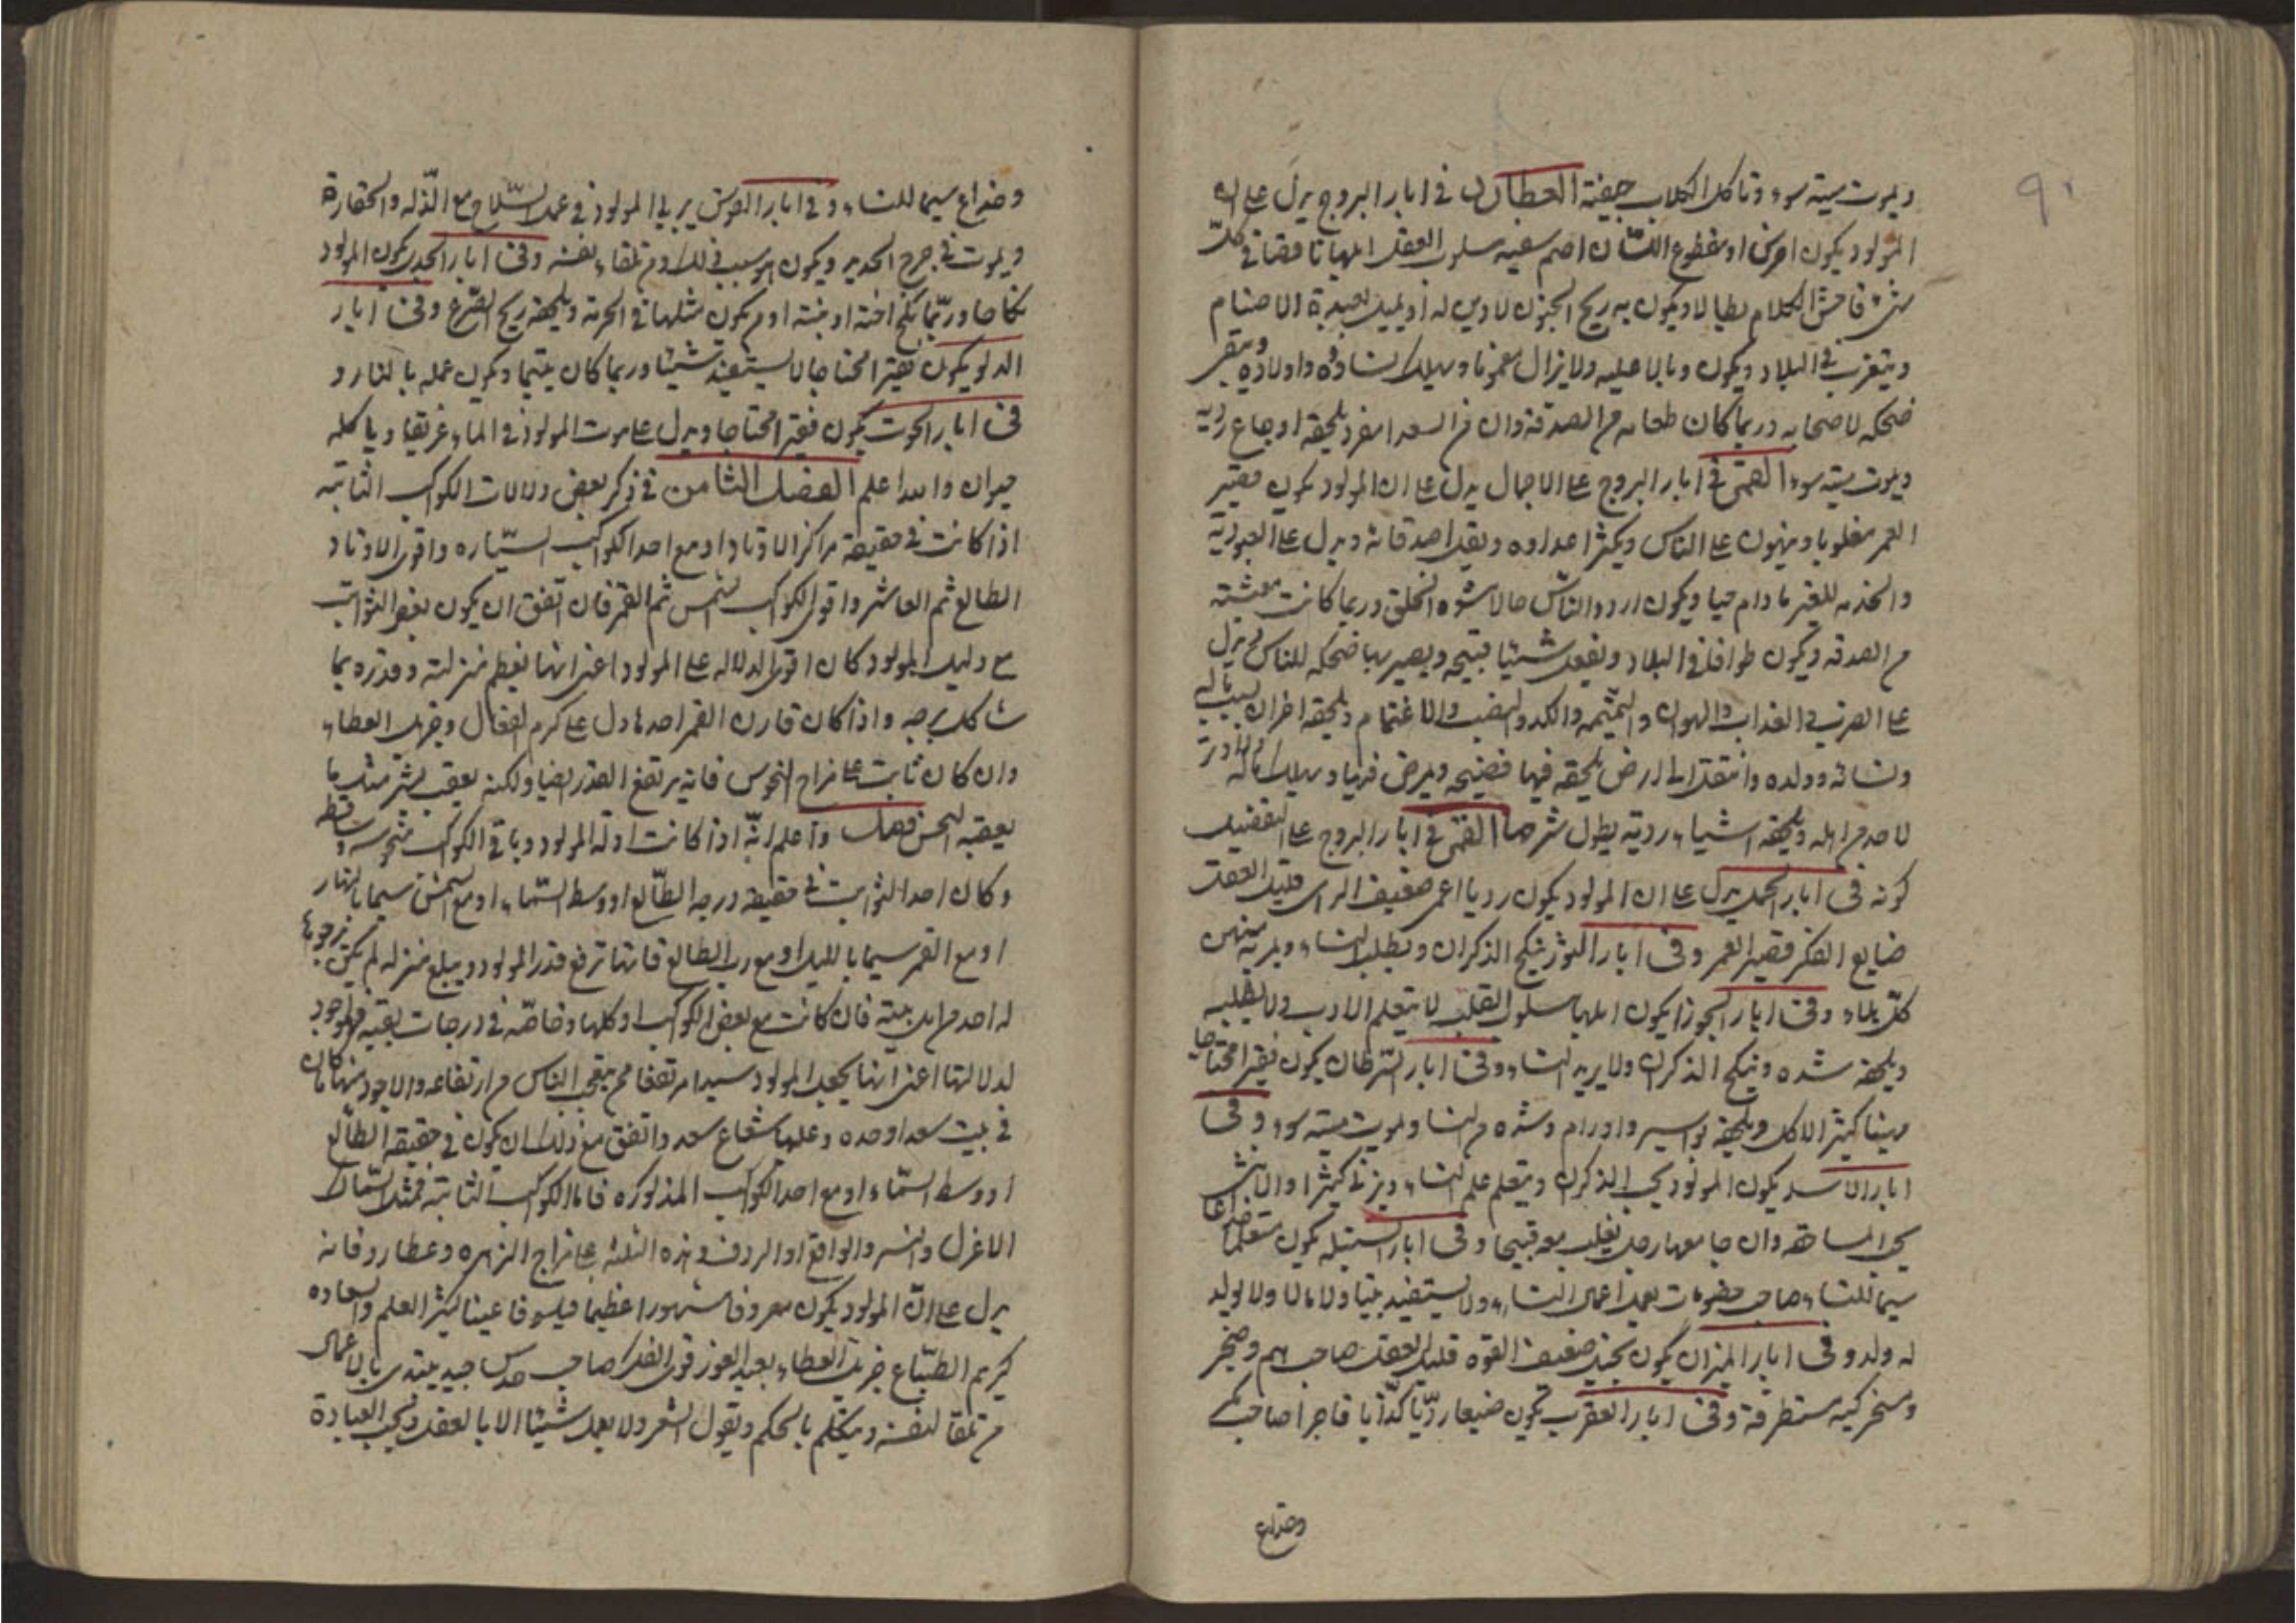 ٩٠
ويموت ميتة سوء وتاكل الكلاب جيفته العطارد في ابار البروج يدل على ان
المولود يكون اخرس او مقطوع اللسان اصم سفيه مسلوب العقل ابلها ناقصا في كل
شيء فاحش الكلام بطالا ويكون به ريح الجنون لا دين له او يميل لعبدة الاصنام
ويتغرب في البلاد ويكون وبالا عليه ولا يزال مغموما ويهلك نساؤه واولاده ويبقى
ضحكه لاصحابه وربما كان طعامه من الصدقة وان فر السعد يلحقه اوجاع ردية
ويموت ميتة سوء القمر في ابار البروج على الاجمال يدل على ان المولود يكون فقير
العمر مغلوبا ويهون على الناس ويكثر اعداوه ويقل اصدقائه ويدل على العبودية
والخدمه للغير ما دام حيا ويكون اردا الناس حالا مشوه الخلق وربما كانت معيشته
من الصدقه ويكون طوافا في البلاد ويفعل شيئا قبيحه ويصير بها ضحكه للناس ويدل
على الضرب والعذاب والهوان والشتيمه والكد والغضب والاغتمام ويلحقه احزان بسبب ماله
ونسائه وولده وانتقل الى ارض يلحقه فيها فضيحه ويمرض فيها ويهلك ماله
لا صدمر اهله ويلحقه اشياء ردية يطول شرحها القمر في ابار البروج على التفصيل
كونه في ابار الحمل يدل على ان المولود يكون رديا اعمى ضعيف الراى قليل العقل
ضايع الفكر قصير العمر وفي ابار الثور ينكح الذكران ويطلب النساء ويرى منهن
كل بلاء وفي ابار الجوزا يكون ابلها مسلوب القلب لا يتعلم الادب ولا يطلبه
ويلحقه شده وينكح الذكران ولا يريد النساء وفي ابار السرطان يكون فقيرا محتاجا
مهينا كثير الاكل ويلحقه بواسير واورام وشده من النساء ويموت ميتة سوء وفي
ابار الاسد يكون المولود يحب الذكران ويتعلم علم النساء ويزني كثيرا والانثى
تحب المساحقه وان جامعها رجل يفعل معه قبيحا وفي ابار السنبله يكون متعلما خداعا
سيما للنساء صاحب خصومات يعمل اعمال النساء ولا يستفيد بيتا ولا مالا ولا يولد
له ولد وفي ابار الميزان يكون بخيل ضعيف القوه قليل العقل صاحب هم وضجر
وسخر كيه مستطرفة وفي ابار العقرب يكون ضيعا رديا كذابا فاجرا صاحب مكر
وخداع
وخداع سيما للنساء وفي ابار القوس يربي المولود في عمل السلاح مع الذله والحقارة
ويموت في جرح الحديد ويكون هو سبب ذلك من تلقاء نفسه وفي ابار الجدي يكون المولود
نكاحا وربما نكح اخته او بنته او من يكون مثلها في الحرمة ويلحقه ريح الصرع وفي ابار
الدلو يكون فقيرا محتاجا لا يستفيد شيئا وربما كان يتيما ويكون عمله بالنار و
في ابار الحوت يكون فقيرا محتاجا ويدل على موت المولود في الماء غريقا وياكله
حيوان والله اعلم الفصل الثامن في ذكر بعض دلالات الكواكب الثابته
اذا كانت في حقيقة مراكز الاوتاد او مع احد الكواكب السياره واقوى الاوتاد
الطالع ثم العاشر واقوى الكواكب شمس ثم القمر فان اتفق ان يكون بعض الثوابت
مع دليل المولود كان اقوى الدلاله على المولود اعني انها تعظم منزلته وقدره بما
شاكل برجه واذا كان قارن القمر احدها دل على كرم الفعال وجزيل العطاء
وان كان ثابت على مزاج النحوس فانه يرتفع القدر ايضا ولكنه يعقب بشر مثل ما
يعقبه النحس فصل واعلم انه اذا كانت ادلة المولود وباقي الكواكب منحوسه وساقطه
وكان احد الثوابت في حقيقة درجه الطالع او وسط السماء او مع الشمس سيما بالنهار
او مع القمر سيما بالليل او مع رب الطالع فانها ترفع قدر المولود ويبلغ منزله لم يكن يرجوها
له احد من اهل بيته فان كانت مع بعض الكواكب او كلها وخاصه في درجات بقيه فهو اجود
لدلالتها اعني انها يجعل المولود سيدا مرتفعا من يتعجب الناس من ارتفاعه والاجود منها ما كان
في بيت سعد او حده وعليها شعاع سعد واتفق مع ذلك ان يكون في حقيقة الطالع
او وسط السماء او مع احد الكواكب المذكوره فاما الكواكب الثابته فمثل السماك
الاعزل والنسر والواقع او الردف وهذه الثلثه على مزاج الزهره وعطارد فانه
يدل على ان المولود يكون معروفا مشهورا عظيما فيلسوفا عينا كثير العلم والسعاده
كريم الطباع جزيل العطاء بعيد الغور قوى الفكر صاحب حدس جيد يبتدى بالاعمال
من تلقا لنفسه ويتكلم بالحكم ويقول الشعر ولا يعمل شيئا الا بالعقل ويحب العبادة